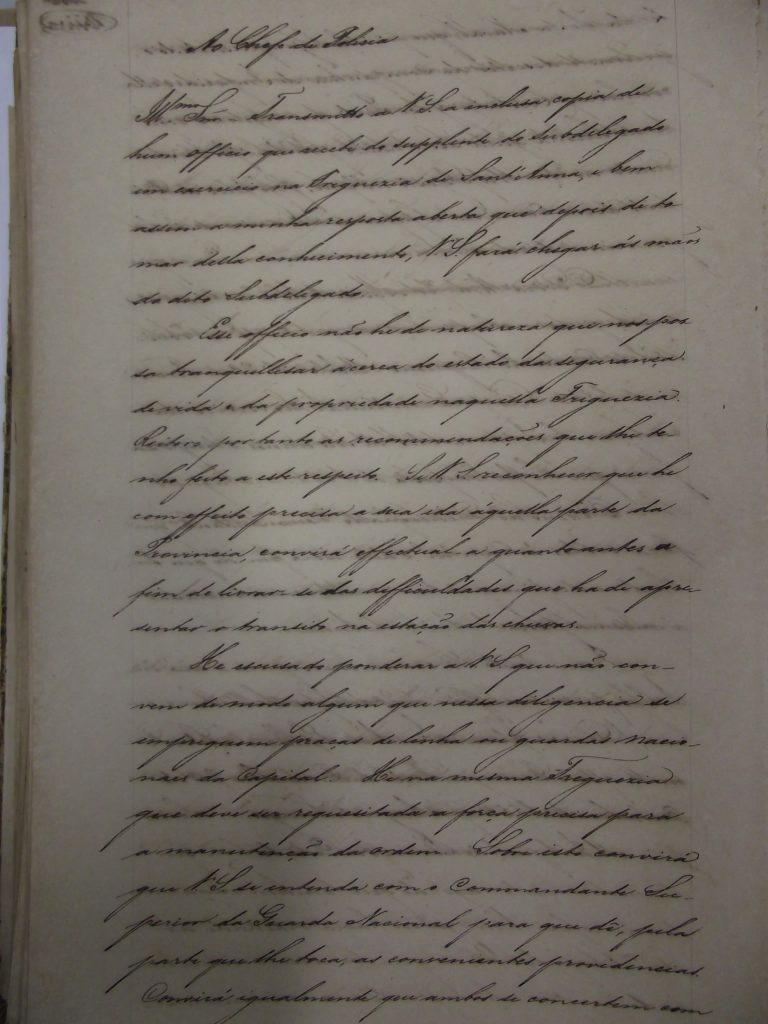 Ao Chefe de Policia
Illmo Snr. Transmitto a V.S. a inclusa copia de
hum officio que recebi do supplente do Subdelegado
em exercicio na Freguezia de Sant'Anna, e bem
assim a minha resposta aberta que depois de to
mar della conhecimento, V.S. fará chegar ás mãos
do dito Subdelegado.
Esse officio não he de natureza que nos pos
sa tranquillisar ácerca do estado da segurança
de vida e da propriedade naquella Freguezia.
Reitero por tanto as recommendações que lhe te
nho feito a este respeito. Se V.S. reconhecer que he
com effeito precisa a sua ida áquella parte da
Provincia, convirá effectual-a quanto antes a
fim de livrar-se das difficuldades que ha de apre-
sentar o transito na estação das chuvas.
He escusado ponderar a V.S. que não con-
vem de modo algum que nessa diligencia se
empreguem praças de linha ou guardas nacio-
naes da Capital. He na mesma Freguezia
que deve ser requesitada a força precisa para
a manutenção da ordem. Sobre isto convirá
que V.S. se entenda com o Commandante Su-
perior da Guarda Nacional para que dê, pela
parte que lhe toca, as convenientes providencias.
Convirá igualmente que ambos se concertem com